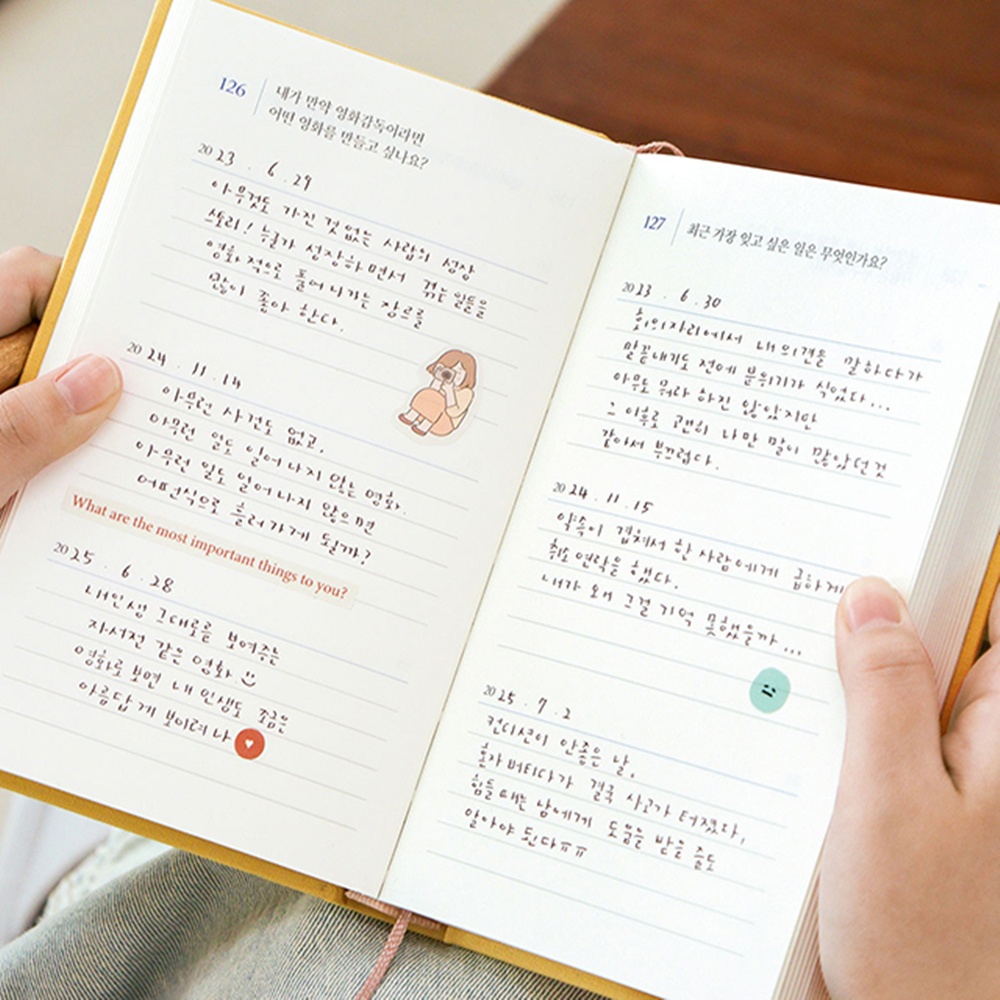 126
내가 만약 영화감독이라면
어떤 영화를 만들고 싶나요?
2023 . 6 . 29
아무것도 가진 것 없는 사람의 성장
스토리! 누군가 성장하면서 겪는 일들을
영화적으로 풀어나가는 장르를
많이 좋아 한다.
2024 . 11 . 14
아무런 사건도 없고,
아무런 일도 일어나지 않는 영화.
아무런 일도 일어나지 않으면
어떤식으로 흘러가게 될까?
What are the most important things to you?
2025 . 6 . 28
내인생 그대로를 보여주는
자서전 같은 영화
영화로 보면 내 인생도 조금은
아름답게 보이려나
127
최근 가장 잊고 싶은 일은 무엇인가요?
2023 . 6 . 30
회의자리에서 내 의견을 말하다가
말끝내기도 전에 분위기가 식었다...
아무도 뭐라 하진 않았지만
그 이후로 괜히 나만 말이 많았던것
같아서 부끄럽다.
2024 . 11 . 15
약속이 겹쳐서 한 사람에게 급하게
취소 연락을 했다.
내가 왜 그걸 기억 못했을까...
2025 . 7 . 2
컨디션이 안좋은 날,
혼자 버티다가 결국 사고가 터졌다,
힘들 때는 남에게 도움을 받을 줄도
알아야 된다ㅠㅠ